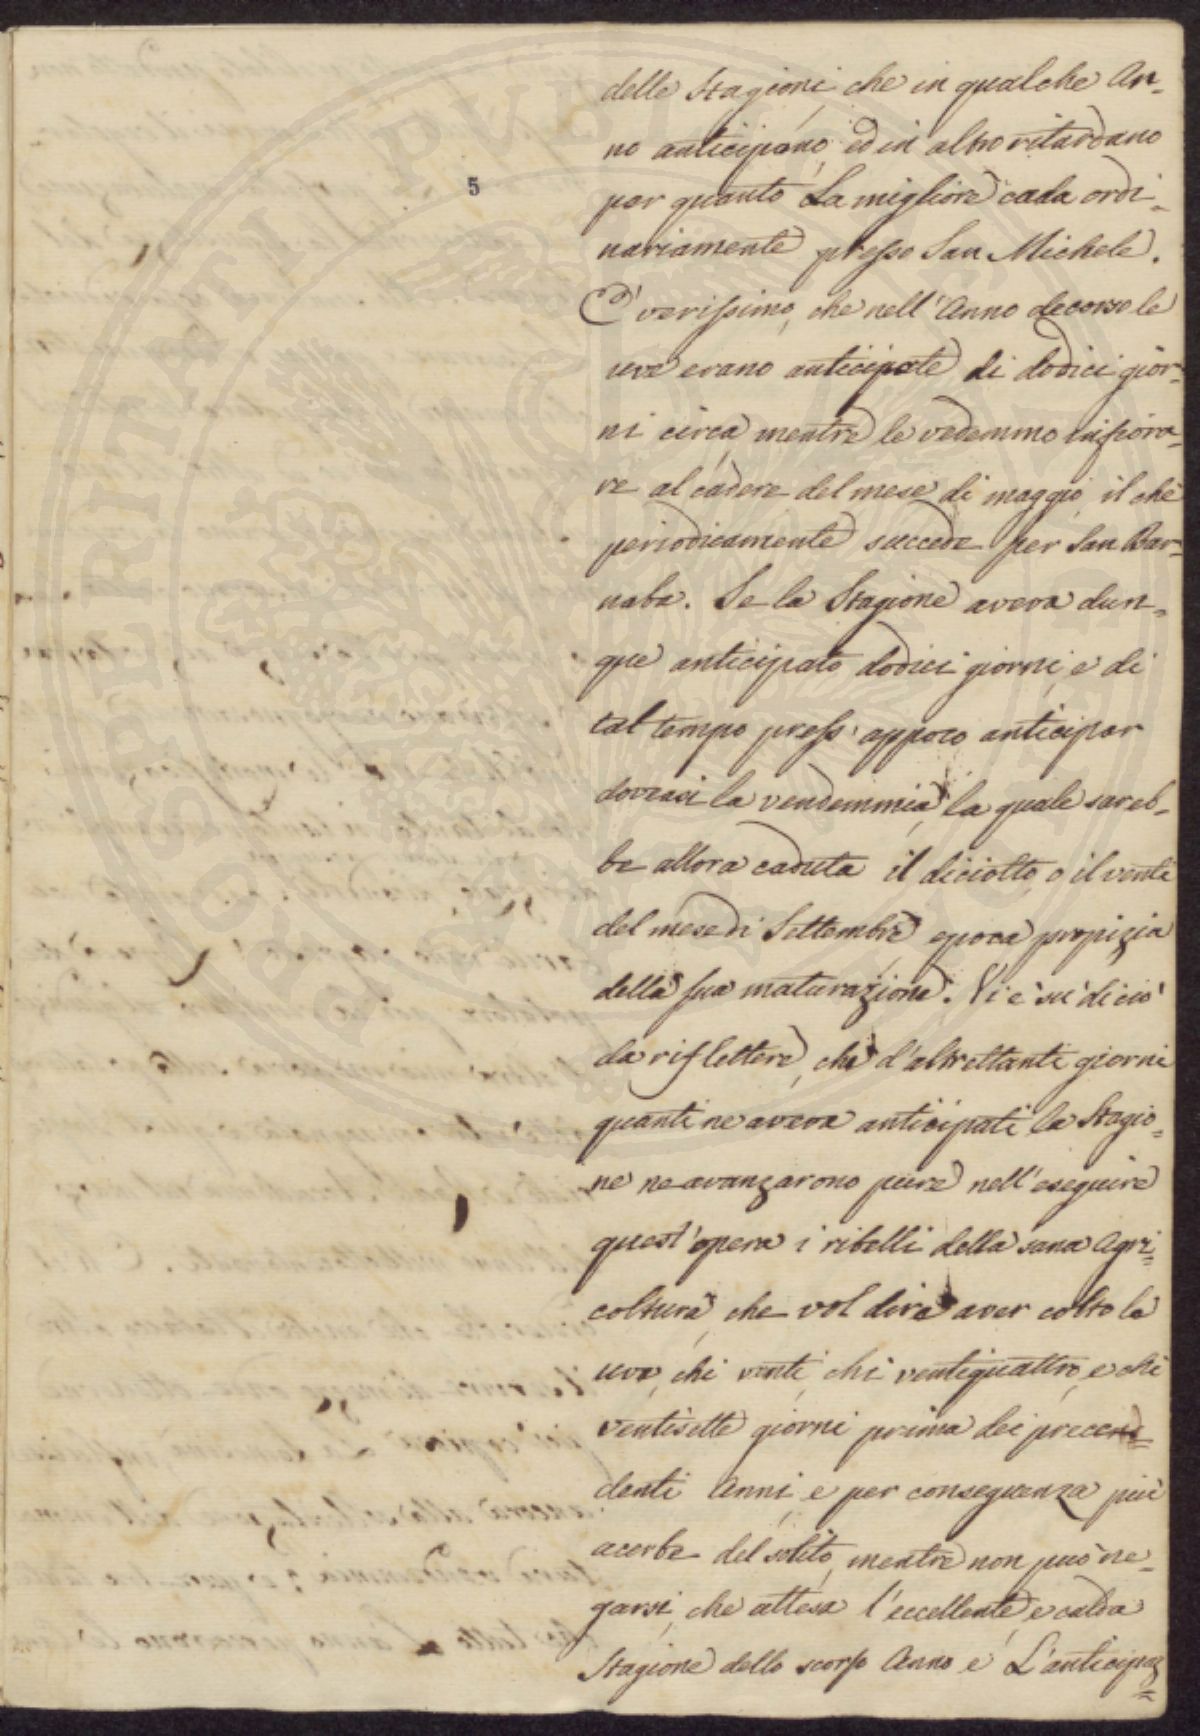 5
delle Stagioni, che in qualche An-
no anticipano, ed in altro ritardano
per quanto La migliore cada ordi-
nariamente presso San Michele.
E' verissimo, che nell'Anno decorso le
uve erano anticipate di dodici gior-
ni circa, mentre le vedemmo infiora-
re al cadere del mese di maggio, il chè
periodicamente succede per San Bar-
naba. Se la Stagione aveva dun-
que anticipato dodici giorni, e di
tal tempo press'appoco anticipar
doveasi la vendemmia, la quale sareb-
be allora caduta il diciotto, o il venti
del mese di Settembre, epoca propizia
della sua maturazione. Vi è sù di ciò
da riflettere, che d'altrettanti giorni
quanti ne aveva anticipati la Stagio-
ne ne avanzarono pure nell'eseguire
quest'opera i ribelli della sana Agri-
coltura, che vol dire aver colto le
uve, chi venti, chi ventiquattro, e chi
ventisette giorni prima dei prece
denti Anni, e per conseguenza più
acerbe del solito, mentre non può ne-
garsi, che attesa l'eccellente, e calda
Stagione dello scorso Anno e L'anticipaz